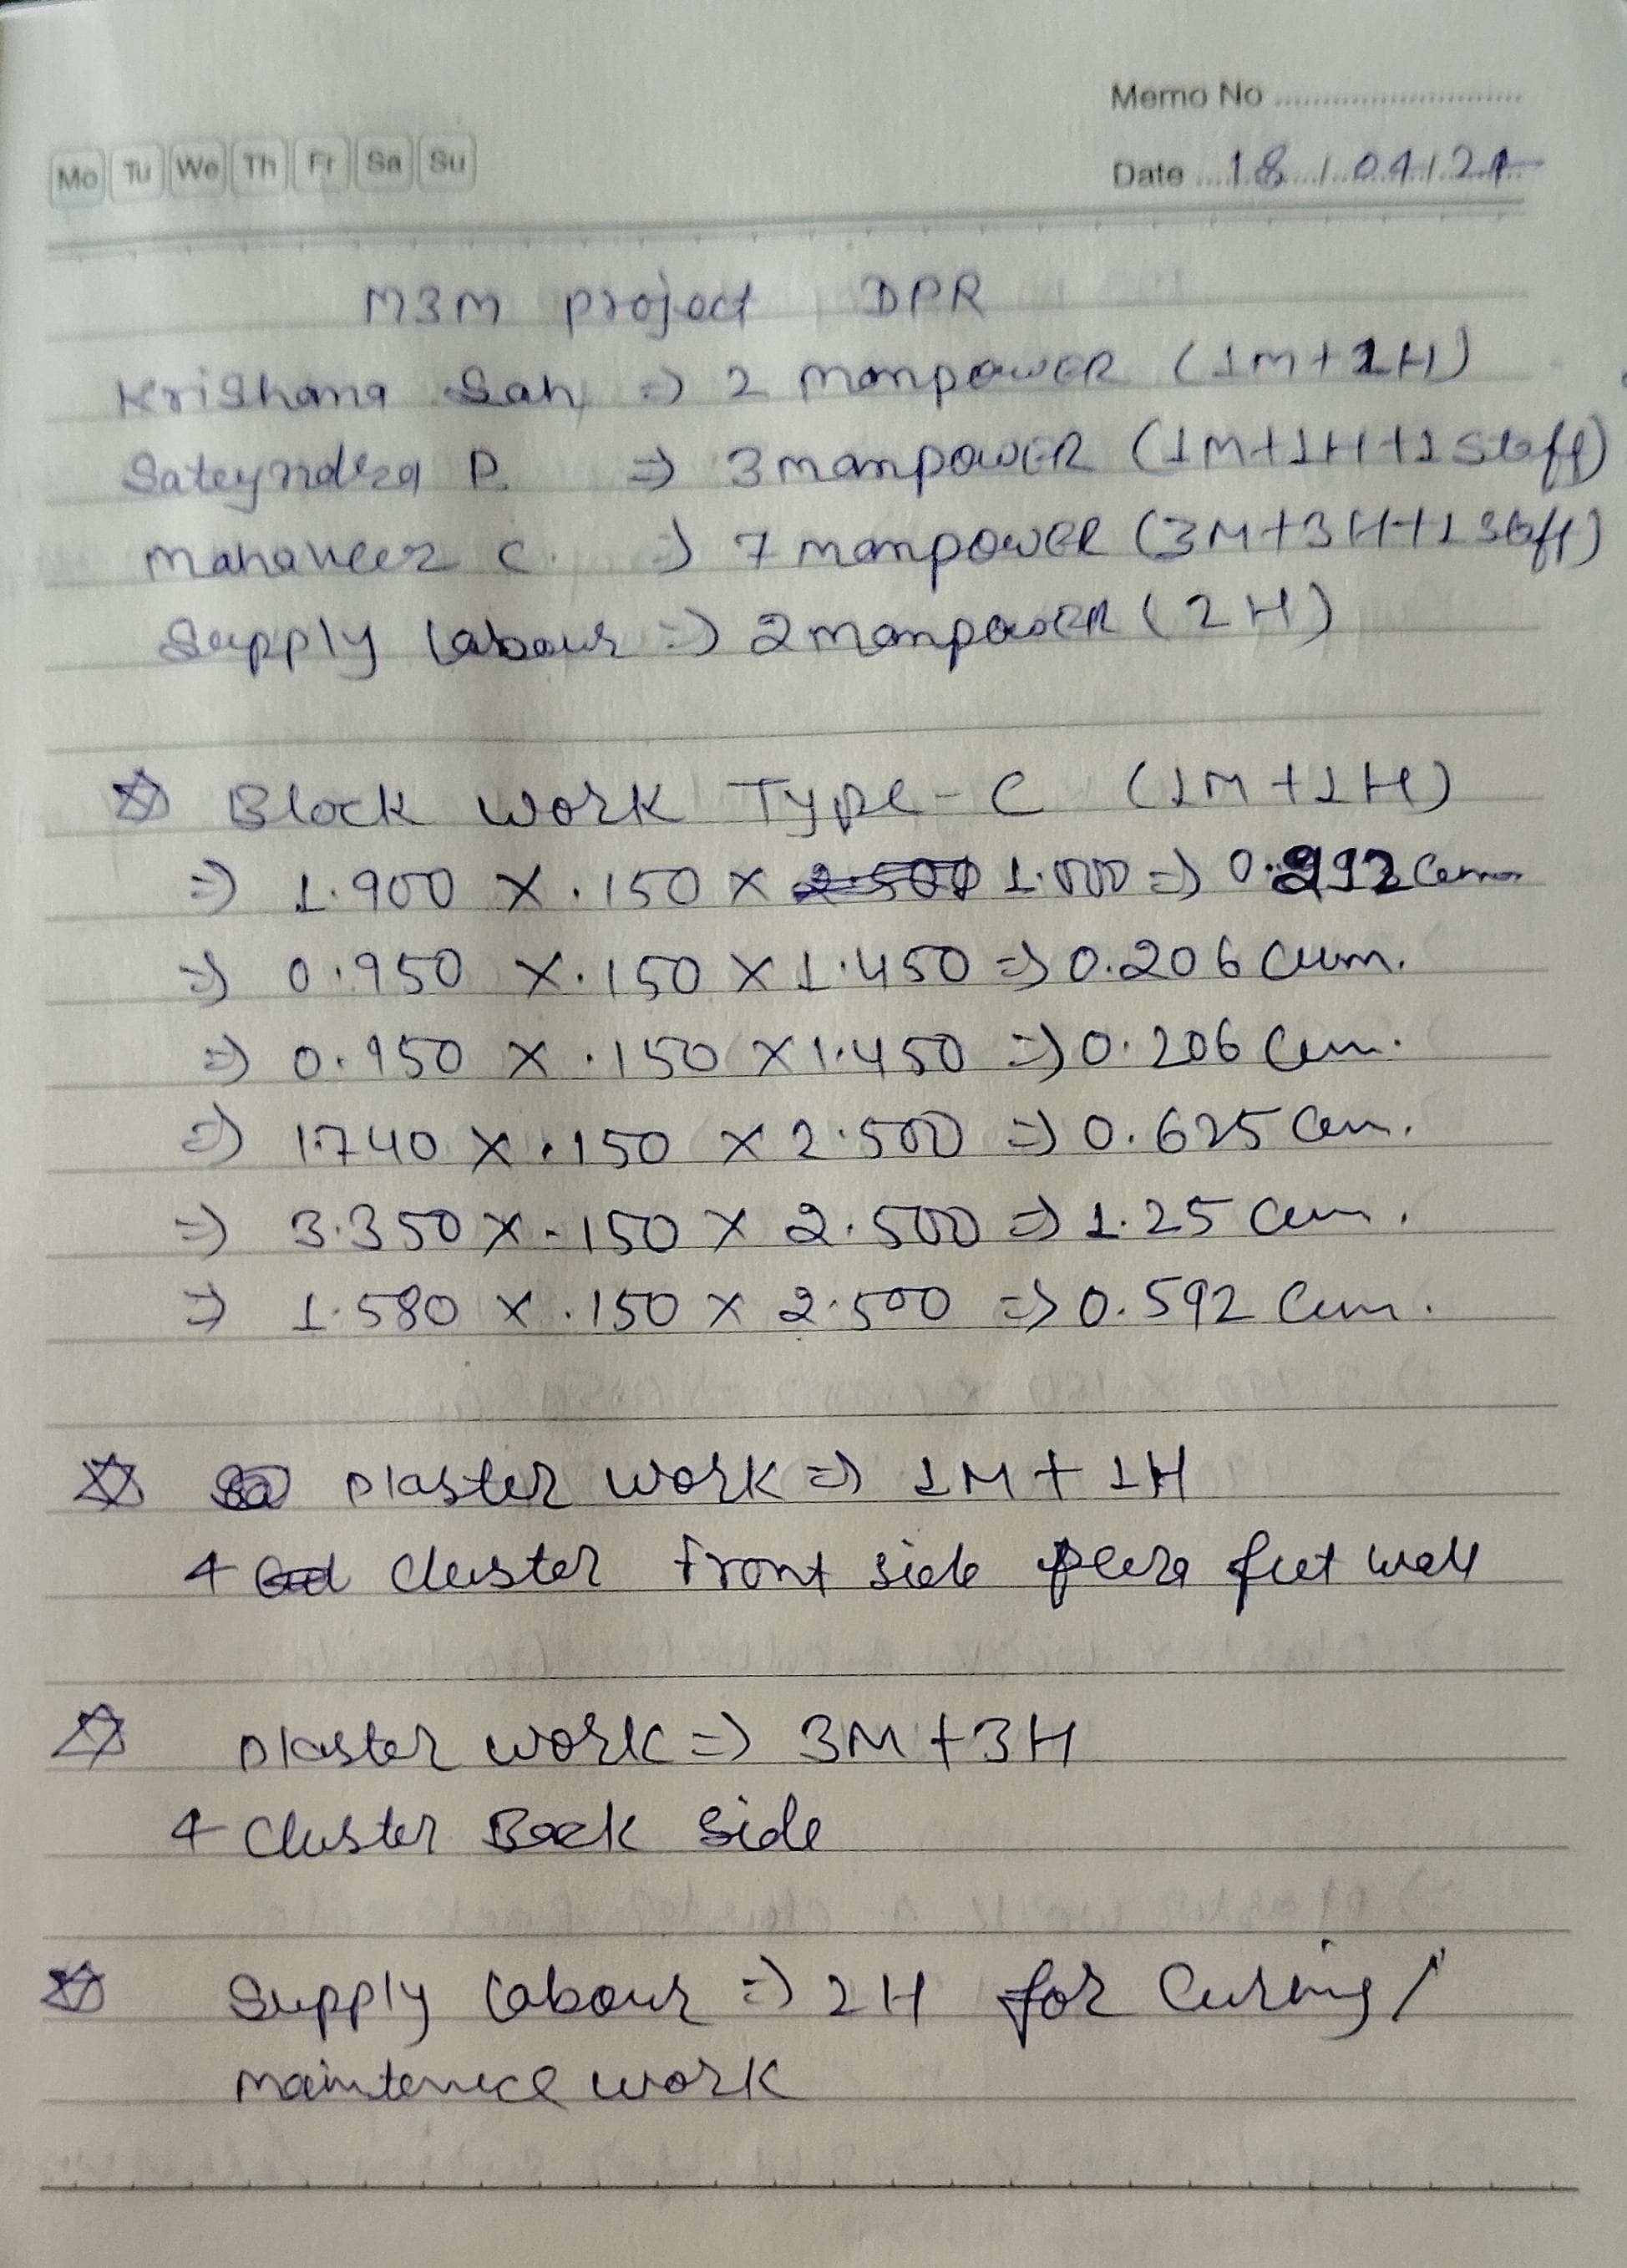 Memo No
Mo Tu We Th Fr Sa Su
Date 18/04/21
M3M project DPR
Krishana Sah => 2 manpowER (1M+1H)
Sateyndra P. => 3 manpowER (1M+1H+1 Staff)
Mahaveer C. => 7 manpowER (3M+3H+1 Staff)
Supply labour => 2 manpowER (2H)
☆ Block work Type-C (1M+1H)
=> 1.900 X .150 X 1.000 => 0.292 Cum
=> 0.950 X .150 X 1.450 => 0.206 Cum.
=> 0.950 X .150 X 1.450 => 0.206 Cum.
=> 1.740 X .150 X 2.500 => 0.625 Cum.
=> 3.350 X .150 X 2.500 => 1.25 Cum.
=> 1.580 X .150 X 2.500 => 0.592 Cum.
☆ plaster work => 1M + 1H
4 Cluster front side feet wall
☆ plaster work => 3M + 3H
4 Cluster Back side
☆ Supply labour => 2H for Curing/
maintenece work